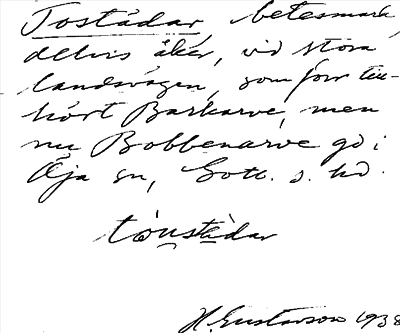 Tostädar, betesmark,
delvis åker, vid stora
landsvägen, som förr till-
hört Barkarve, men
nu Bobbenarve gd i
Öja sn, Gotl. s. hd.
tọustädar
H. Gustavson 1938